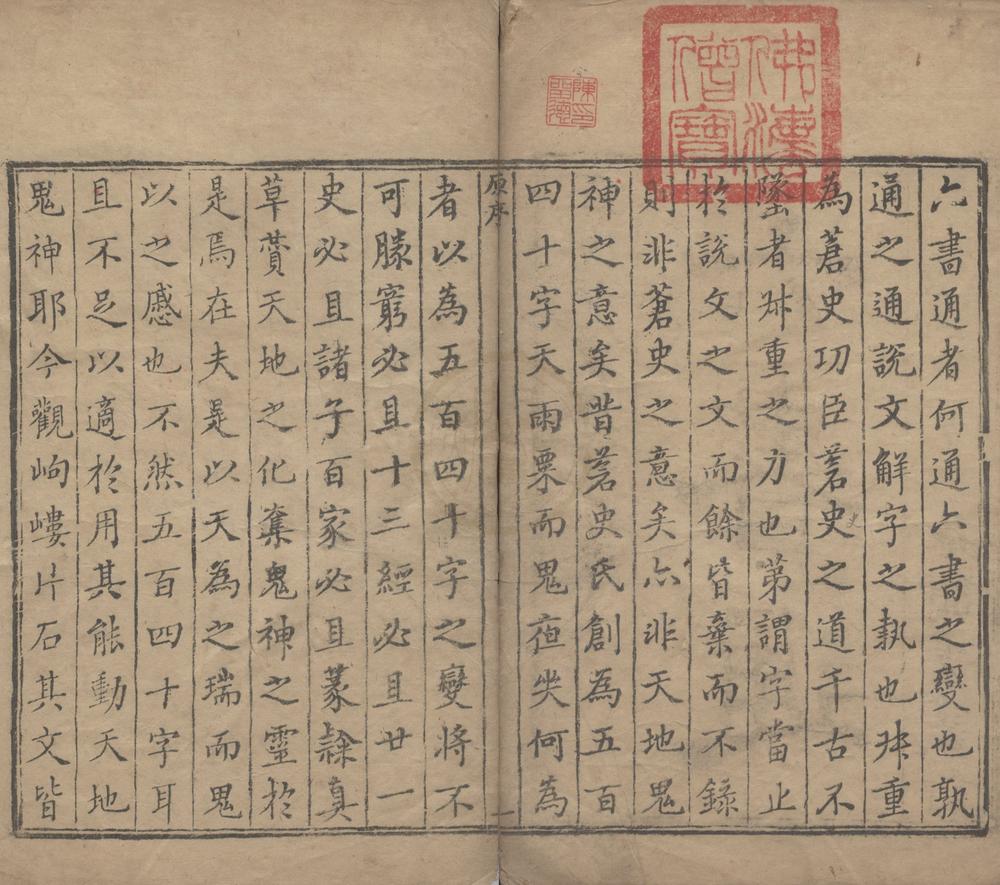 六書通者何通六書之變也孰
通之通說文解字之執也叔重
為蒼史功臣蒼史之道千古不
墜者叔重之力也第謂字當止
於說文之文而餘皆棄而不錄
則非蒼史之意矣亦非天地鬼
神之意矣昔蒼史氏創為五百
四十字天雨粟而鬼夜哭何為
原序
一
者以為五百四十字之變將不
可勝窮必且十三經必且廿一
史必且諸子百家必且篆隸真
草賛天地之化奪鬼神之靈於
是焉在夫是以天為之瑞而鬼
以之慼也不然五百四十字耳
且不足以適於用其能動天地
鬼神耶今觀岣嶁片石其文皆
佛法僧寶
陳印聖德